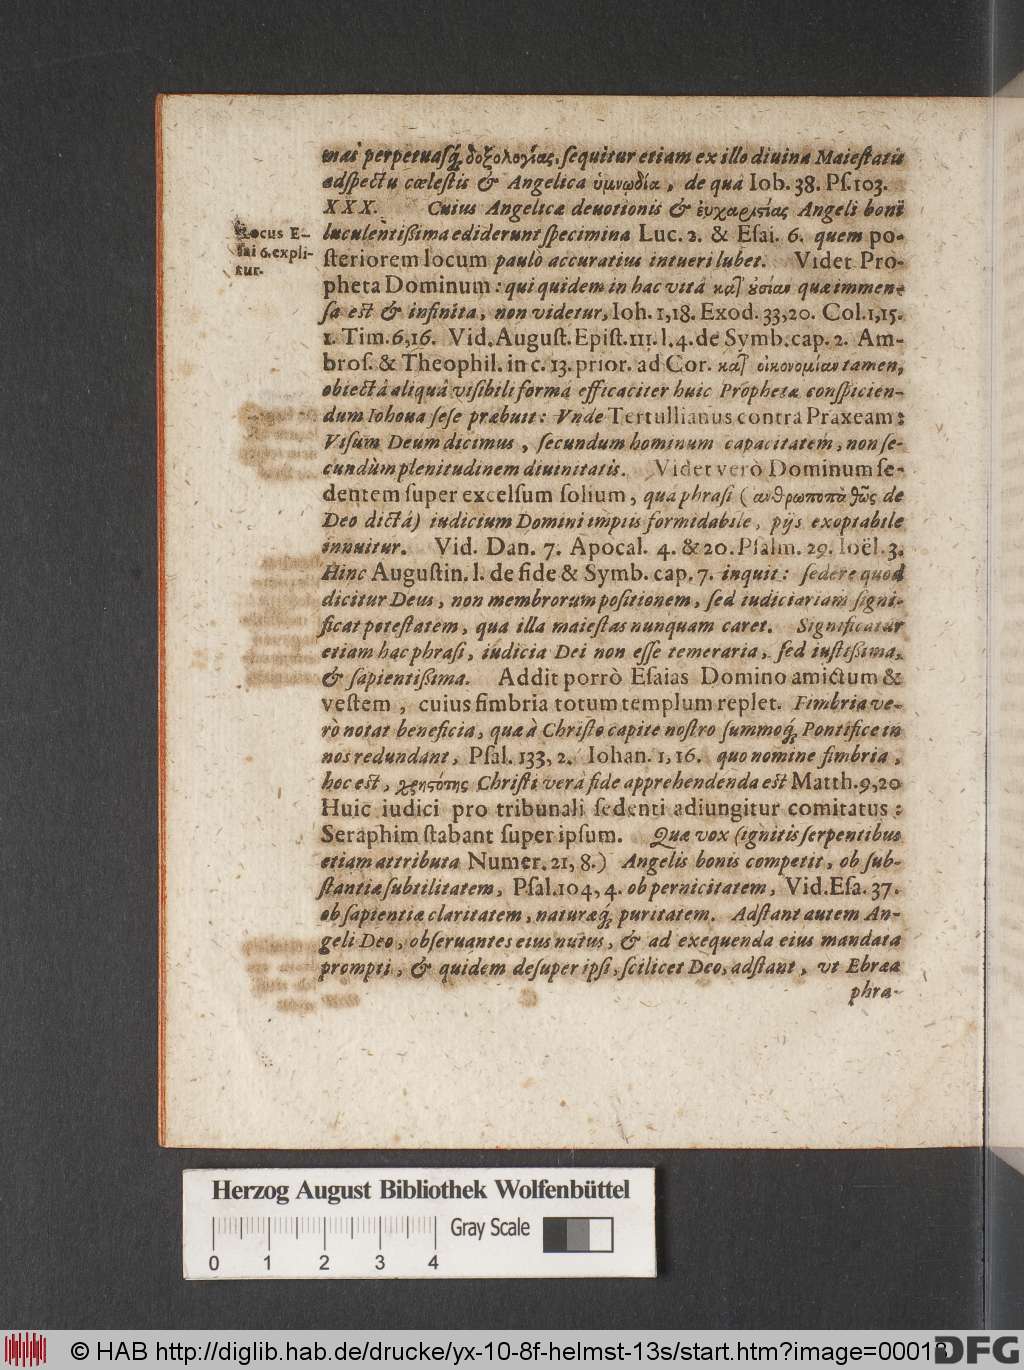 mas perpetuasq́; δοξολογίας, ſequitur etiam ex illo diuina Maieſtatis
adſpectu cœleſtis & Angelica ὑμνωδία, de quâ Iob. 38. Pſ. 103.
XXX. Cuius Angelicæ deuotionis & ἐυχαριστίας Angeli boni
luculentißima ediderunt ſpecimina Luc. 2. & Eſai. 6. quem po-
ſteriorem locum paulò accuratius intueri lubet. Videt Pro-
Locus E-
ſai 6. expli-
tur.
pheta Dominum: qui quidem in hac vitâ κατ᾽ ȣσίαν quæ immen-
ſa eſt & infinita, non videtur, Ioh. 1,18. Exod. 33,20. Col. 1,15.
1. Tim. 6,16. Vid. Auguſt. Epiſt. III. l. 4. de Symb. cap. 2. Am-
broſ. & Theophil. in c. 13. prior. ad Cor. κατ᾽ οἰκονομίαν tamen,
obiectâ aliquâ viſibili formâ efficaciter huic Prophetæ conſpicien-
dum Iehoua ſeſe præbuit: Vnde Tertullianus contra Praxeam:
Viſum Deum dicimus, ſecundum hominum capacitatem, non ſe-
cundùm plenitudinem diuinitatis. Videt verò Dominum ſe-
dentem ſuper excelſum ſolium, quâ phraſi (ἀνθρωποπαθῶς de
Deo dictâ) iudicium Domini impiis formidabile, pijs exoptabile
innuitur. Vid. Dan. 7. Apocal. 4. & 20. Pſalm. 29. Ioël. 3.
Hinc Auguſtin. l. de fide & Symb. cap. 7. inquit: ſedere quod
dicitur Deus, non membrorum poſitionem, ſed iudiciariam ſigni-
ficat poteſtatem, qua illa maieſtas nunquam caret. Significatur
etiam hac phraſi, iudicia Dei non eſſe temeraria, ſed iuſtißima,
& ſapientißima. Addit porrò Eſaias Domino amictum &
veſtem, cuius fimbria totum templum replet. Fimbria ve-
rò notat beneficia, quæ à Chriſto capite noſtro ſummoq́; Pontifice in
nos redundant, Pſal. 133, 2. Iohan. 1, 16. quo nomine fimbria,
hoc eſt, χρηστότης Chriſti verâ fide apprehendenda eſt Matth. 9, 20
Huic iudici pro tribunali ſedenti adiungitur comitatus:
Seraphim ſtabant ſuper ipſum. Quæ vox (ignitis ſerpentibus
etiam attributa Numer. 21, 8.) Angelis bonis competit, ob ſub-
ſtantiæ ſubtilitatem, Pſal. 104, 4. ob pernicitatem, Vid. Eſa. 37.
ob ſapientiæ claritatem, naturæq́; puritatem. Adſtant autem An-
geli Deo, obſeruantes eius nutus, & ad exequenda eius mandata
prompti, & quidem deſuper ipſi, ſcilicet Deo, adſtant, vt Ebræa
phra-
Herzog August Bibliothek Wolfenbüttel
Gray Scale
0 1 2 3 4
© HAB http://diglib.hab.de/drucke/yx-10-8f-helmst-13s/start.htm?image=00013
DFG